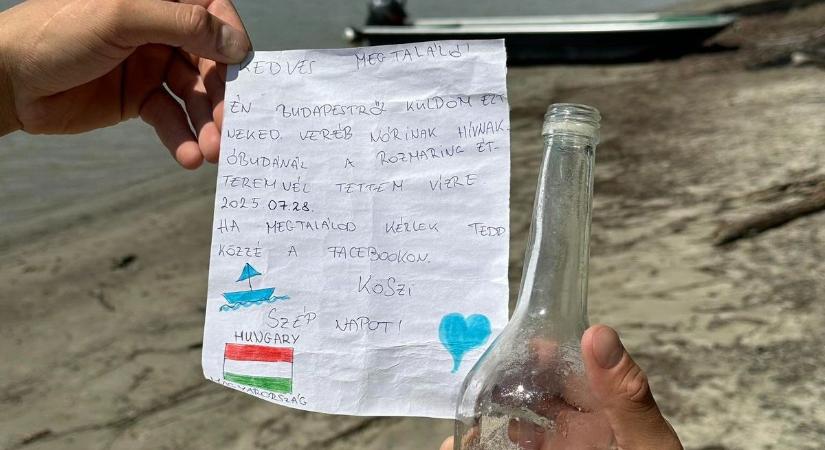 KEDVES MEGTALÁLÓ!
ÉN BUDAPESTRŐL KÜLDÖM EZT
NEKED. VERÉB NÓRINAK HÍVNAK.
ÓBUDÁNÁL A ROZMARING ÉT-
TEREMNÉL TETTEM VÍZRE
2025.07.28.
HA MEGTALÁLOD KÉRLEK TEDD
KÖZZÉ A FACEBOOKON.
KÖSZI
SZÉP NAPOT!
HUNGARY
MAGYARORSZÁG